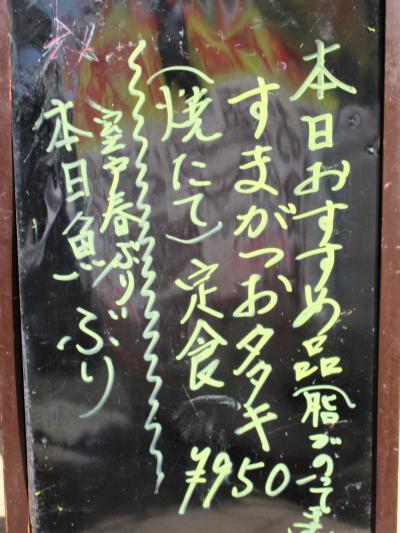 本日おすすめ品(脂がのってま
すまがつおタタキ
(焼たて)定食
¥950
室戸春ぶり
本日魚ぶり